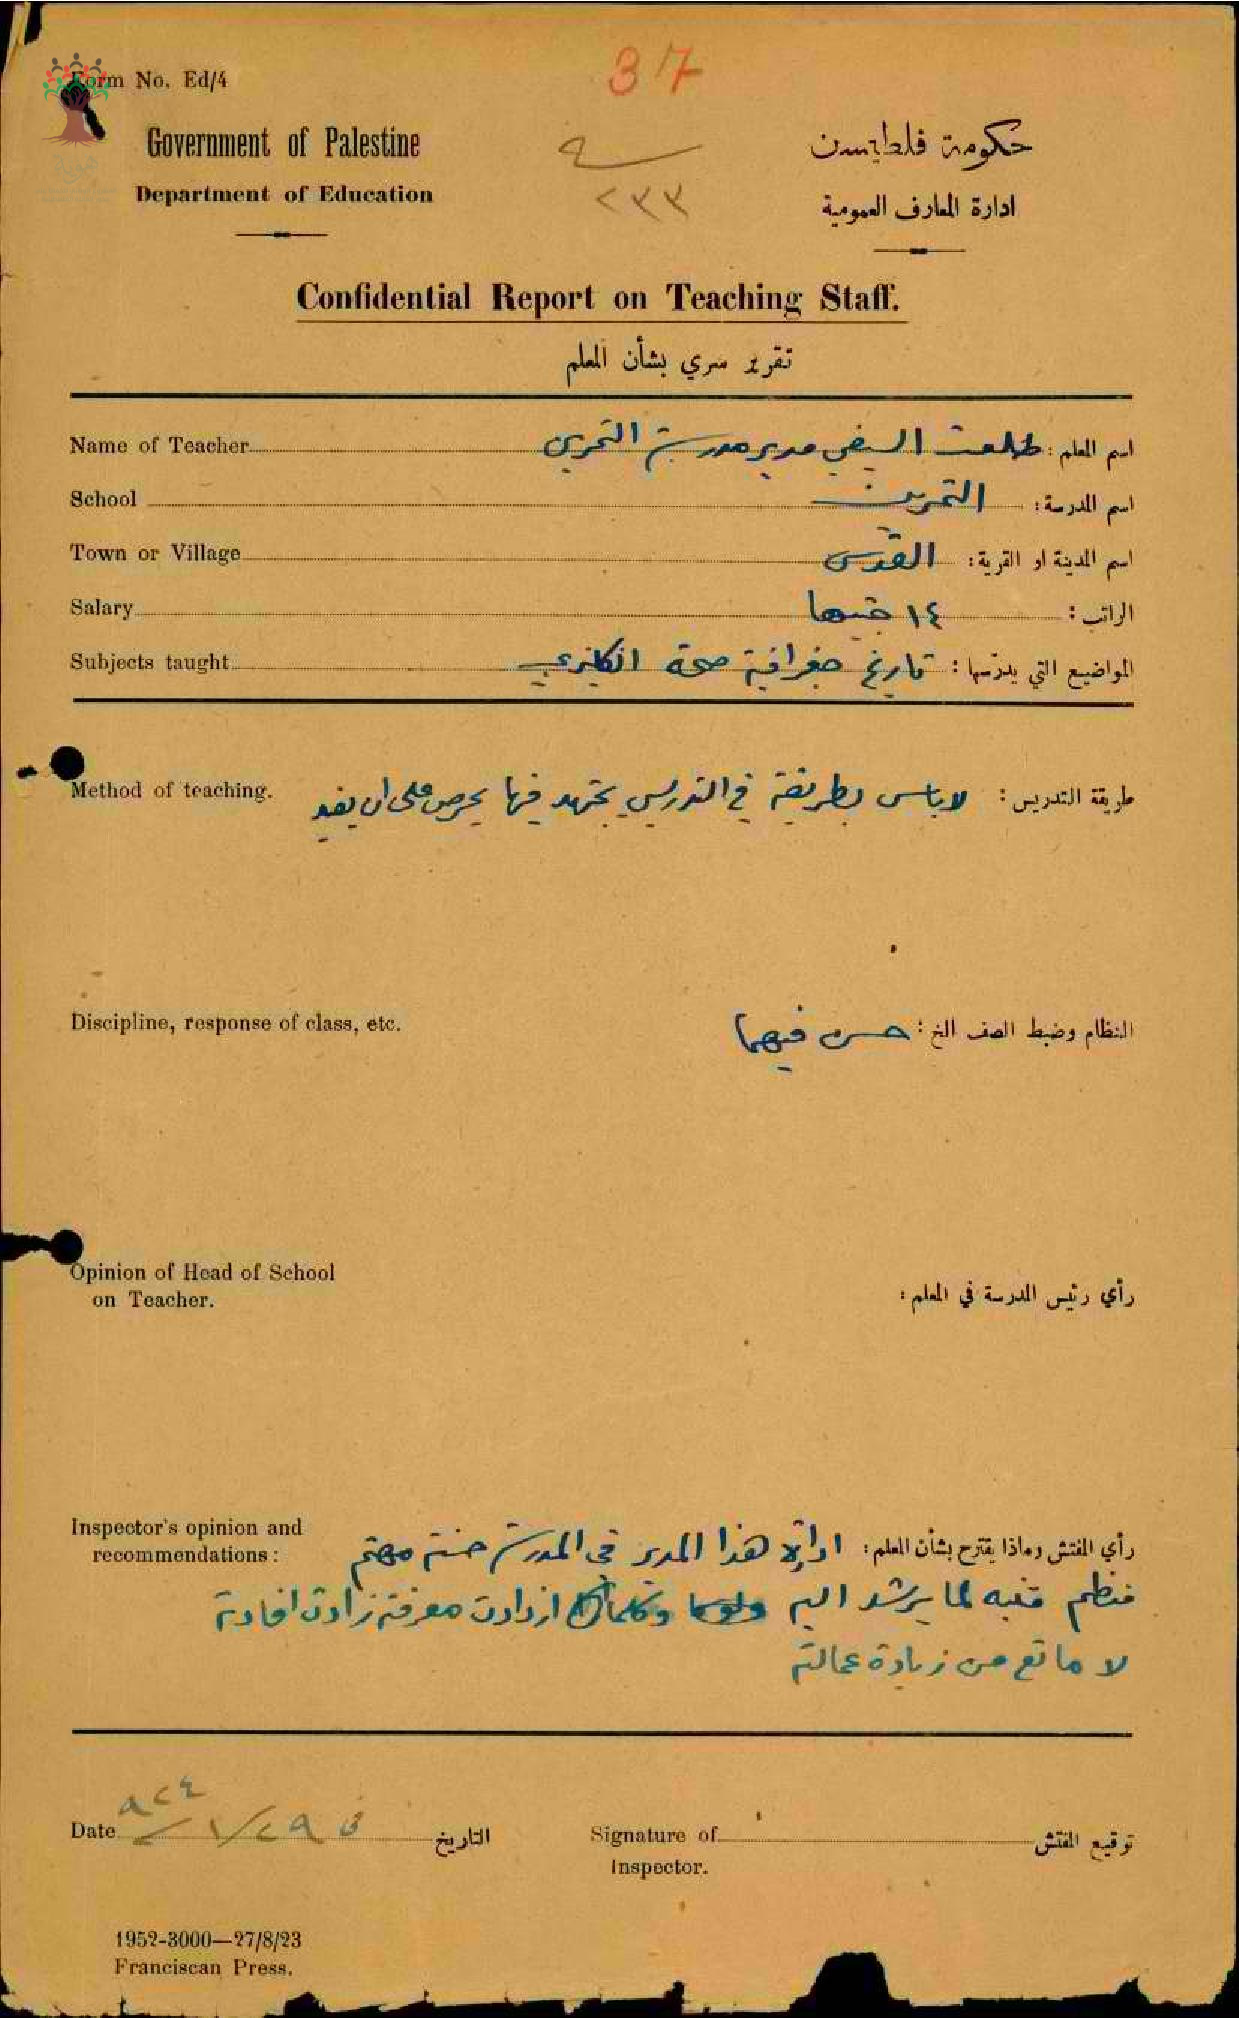 Form No. Ed/4
37
Government of Palestine
حكومة فلطيسن
٢٣٣
Department of Education
ادارة المعارف العمومية
Confidential Report on Teaching Staff.
تقرير سري بشأن المعلم
Name of Teacher اسم المعلم : طلعت السيفي مدير مدرسة التمرين
School اسم المدرسة : التمرين
Town or Village اسم المدينة او القرية : القدس
Salary الراتب : ١٤ جنيها
Subjects taught المواضيع التي يدرّسها : تاريخ جغرافية صحة انكليزي
Method of teaching. طريقة التدريس : لا باس بطريقته في التدريس يجتهد فيها يحرص على ان يفيد
Discipline, response of class, etc. النظام وضبط الصف الخ : حسن فيهما
Opinion of Head of School
on Teacher.
رأي رئيس المدرسة في المعلم :
Inspector's opinion and
recommendations :
رأي المفتش وماذا يقترح بشأن المعلم : ادارة هذا المدير في المدرسة حسنة مهتم
منظم منتبه لما يرشد اليه وكلما ازدادت معرفته زادت افادته
لا مانع من زيادة عمالته
Date في ٢٩/١/٩٢٤ التاريخ
Signature of
Inspector.
توقيع المفتش
1952-3000—27/8/23
Franciscan Press.